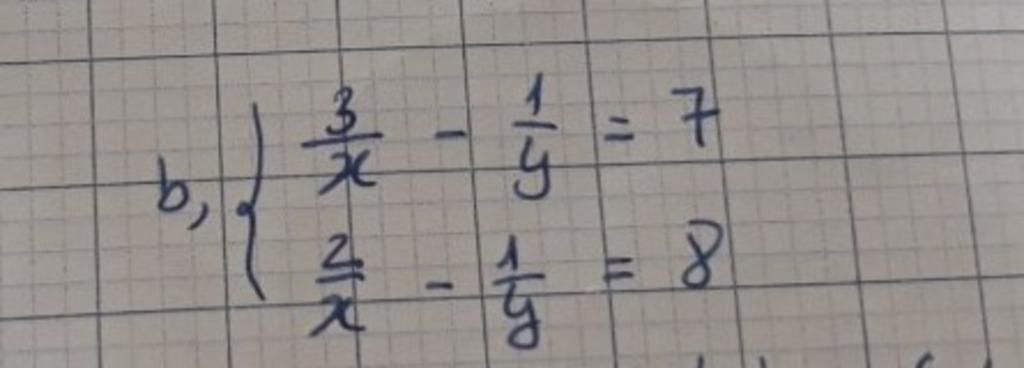 b, { 3/x - 1/y = 7
2/x - 1/y = 8